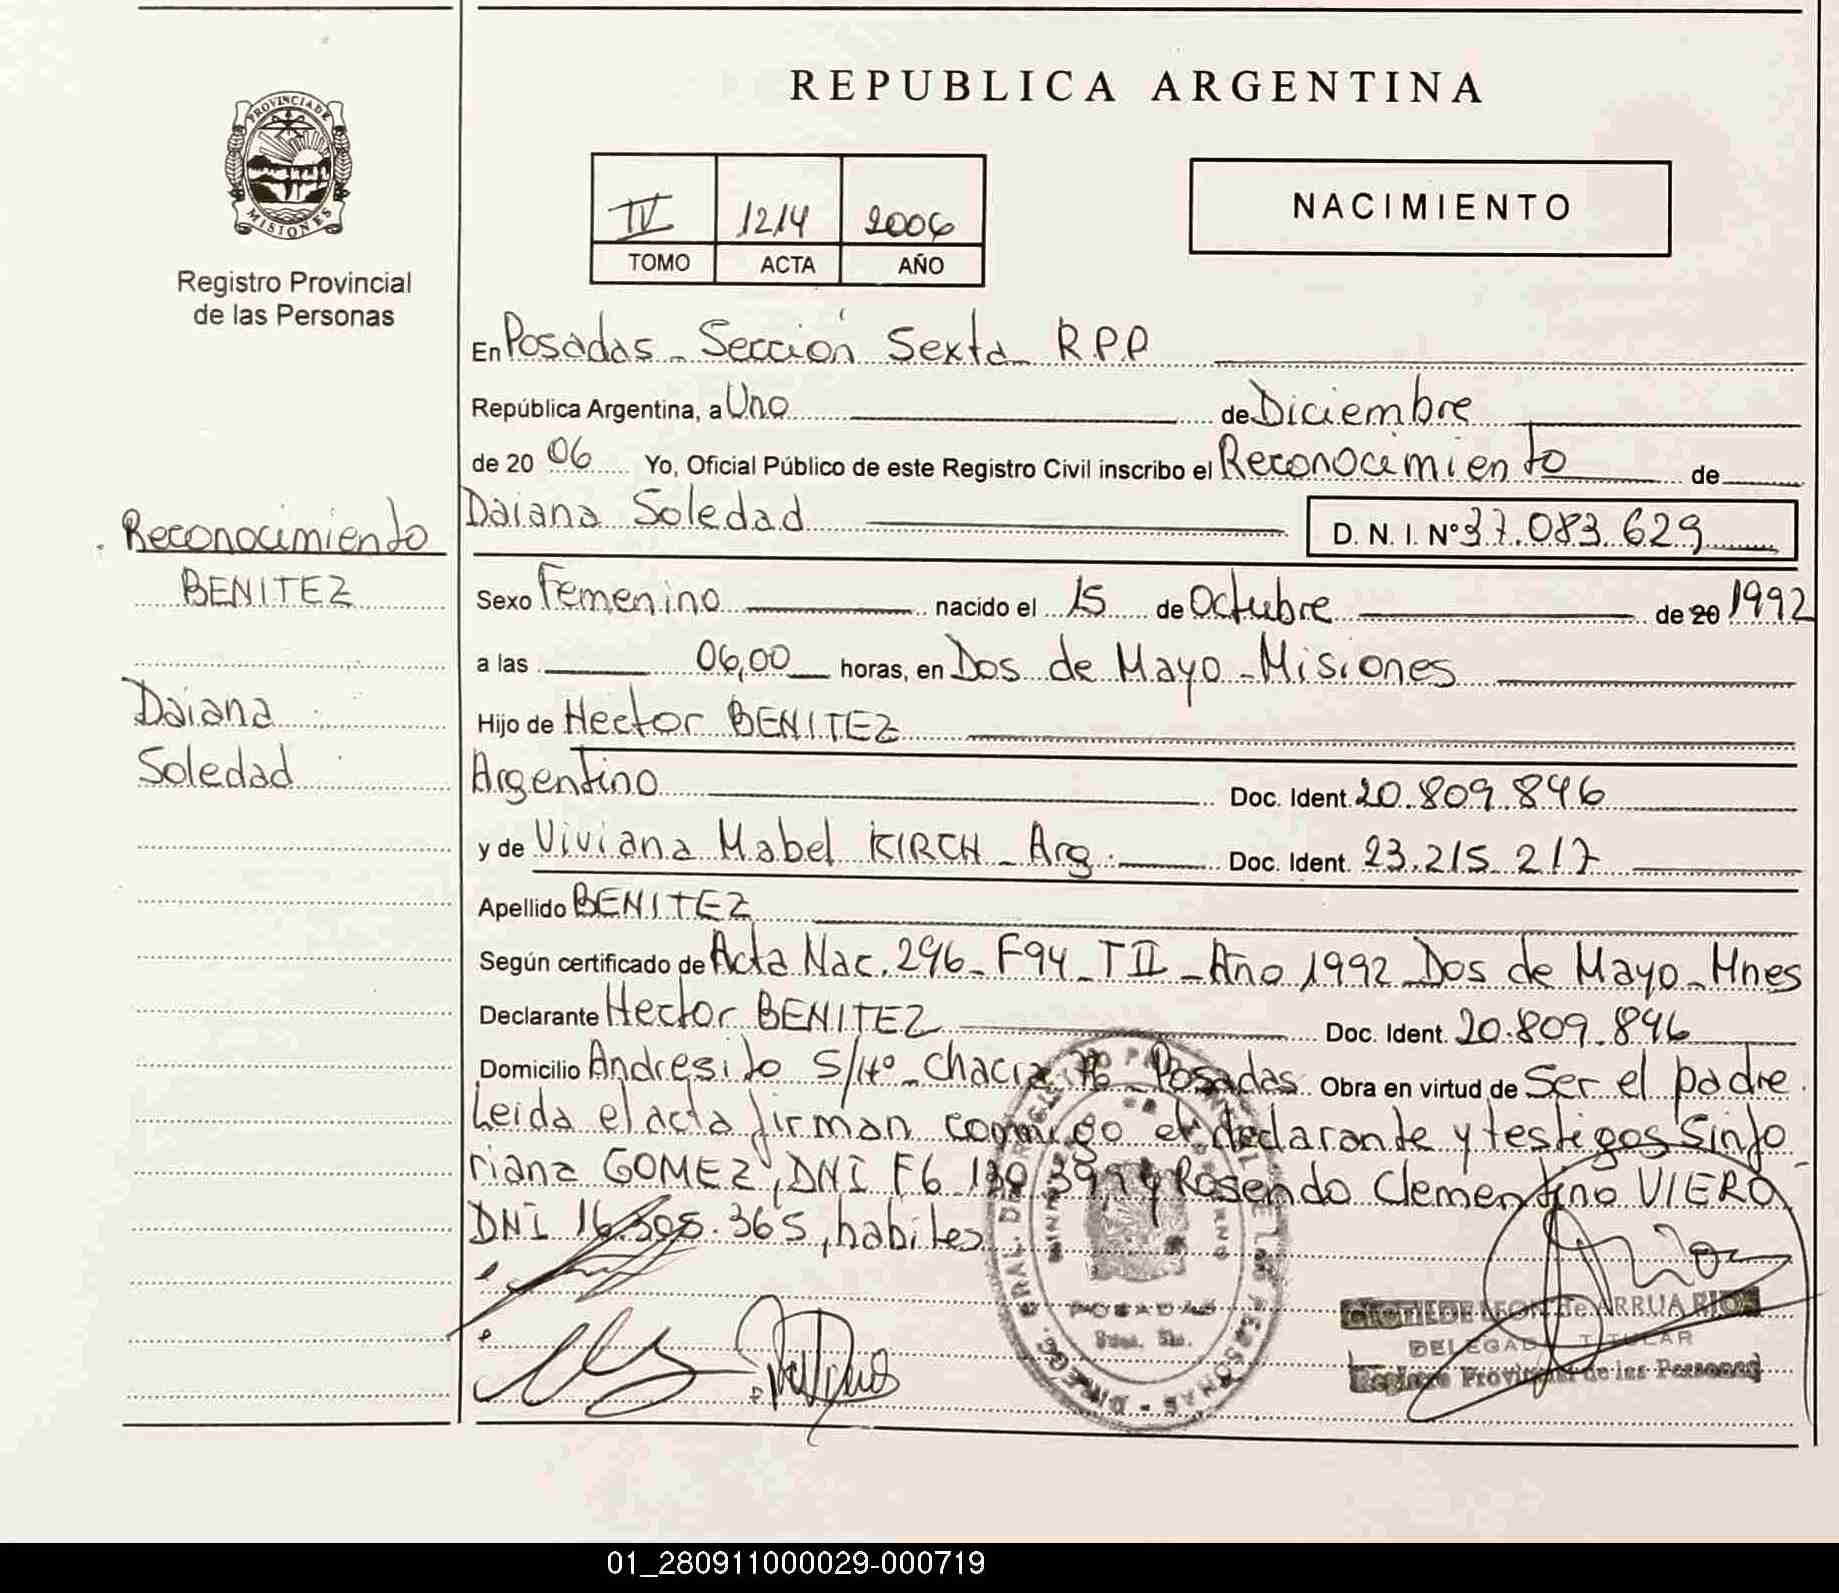 REPUBLICA ARGENTINA
PROVINCIA DE
MISIONES
Registro Provincial
de las Personas
IV 1214 2006
TOMO ACTA AÑO
NACIMIENTO
En Posadas - Sección Sexta - R.P.P
República Argentina, a Uno de Diciembre
de 20 06 Yo, Oficial Público de este Registro Civil inscribo el Reconocimiento de
Daiana Soledad D. N. I. Nº 37.083.629
Reconocimiento
BENITEZ
Daiana
Soledad
Sexo Femenino nacido el 15 de Octubre de 20 1992
a las 06,00 horas, en Dos de Mayo - Misiones
Hijo de Hector BENITEZ
Argentino Doc. Ident. 20.809.846
y de Viviana Mabel KIRCH - Arg. Doc. Ident. 23.215.217
Apellido BENITEZ
Según certificado de Acta Nac. 296 - F94 - T II - Año 1992 Dos de Mayo - Mnes
Declarante Hector BENITEZ Doc. Ident. 20.809.846
Domicilio Andresito S/Nº - Chacra Posadas. Obra en virtud de Ser el padre.
Leida el acta firman conmigo el declarante y testigos Sinfo
riana GOMEZ, DNI F6.130.399 y Rosendo Clementino VIERO
DNI 16.305.365, habiles
POSADAS
LEON de ARRUA RIOS
DELEGADA TITULAR
Registro Provincial de las Personas
01_280911000029-000719